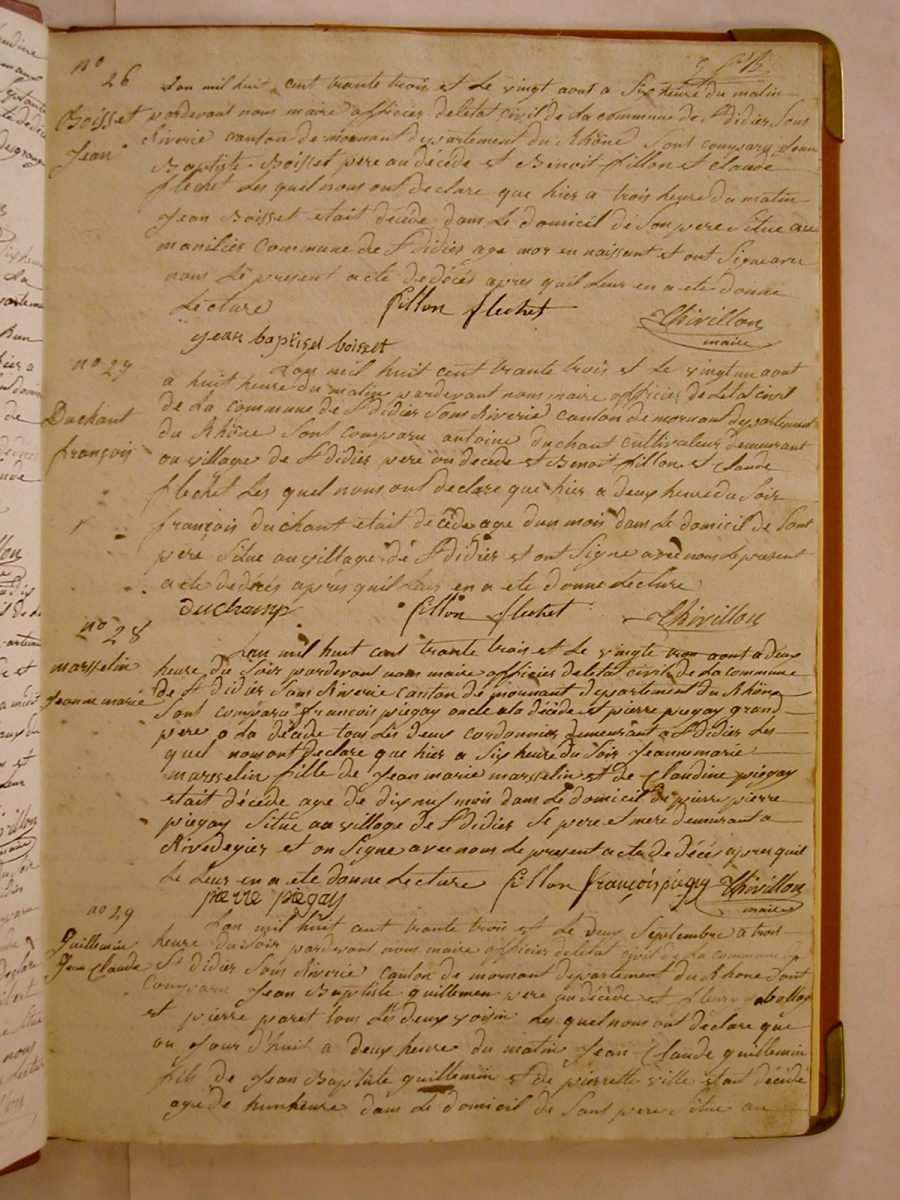 no 26
Boisset
Jean
L'an mil huit cent trante trois et Le vingt aout a Six heure du matin
pardevant nous maire officier deletat civil de La commune de St didier Sous
Riverie canton de mornant departement du Rhône Sont comparu Jean
Baptiste Boisset pere au décédé et Benoit fillon et claude
flechet Les quel nous ont declare que hier a trois heure du matin
Jean Boisset etait décédé dans Le domicil de Son pere Situe au
manilier Commune de St didier age mor en naissent et ont Signe avec
nous Le present acte de décés apres quil Leur en a ete donné
Lecture fillon flechet Thivillon
maire
jean baptiset boisset
no 27
Duchant
françois
L'an mil huit cent trante trois et Le vingt un aout
a huit heure du matin pardevant nous maire officier de Letat civil
de La commune de St didier Sous Riverie canton de mornant departement
du Rhône Sont comparu antoine duchant cultivateur demeurant
au village de St didier pere au decede et Benoit fillon et claude
flechet Les quel nous ont declare que hier a deux heure du Soir
françois duchant etait décédé age dun mois dans Le domicil de Sont
père Situe au village de St didier et ont Signe avec nous Le present
acte de décés apres quil Leur en a ete donne Lecture
duchamp fillon flechet Thivillon
no 28
marsselin
Jeanne marie
L'an mil huit cent trante trois et Le vingte aout a deux
heure du Soir pardevant nous maire officier deletat civil de La commune
de St didier Sous Riverie canton de mornant departement du Rhône
Sont comparu françois piegay oncle a la décédé et pierre piegay grand
pere a La décédé tous Les deux cordonnier demeurant a St didier Les
quel nous ont declare que hier a Six heure du Soir Jeanne marie
marsselin fille de Jean marie marsselin et de Claudine piegay
etait décédé age de dix neuf mois dans Le domicil de pierre pierre
piegay Situe au village de St didier Se pere et mere demeurant a
Rivedegier et on Signe avec nous Le present acte de décés apres quil
Le Leur en a ete donne Lecture fillon françois piegay Thivillon
maire
pierre piegay
no 29
Guillemin
Jean Claude
L'an mil huit cent trante trois et Le deux Septembre a trois
heure du Soir pardevant nous maire officier deletat civil de La Commune
St didier Sous Riverie canton de mornant departement du Rhône Sont
comparu Jean Baptiste guillemen pere au décédé et fleury
et pierre paret tous Les deux voisin Les quel nous ont déclare que
au Jour d'huit a deux heure du matin Jean Claude guillemin
fils de Jean Baptiste guillemin et de pierrette ville etant décédé
age de heure dans Le domicil de Sont pere Situe au